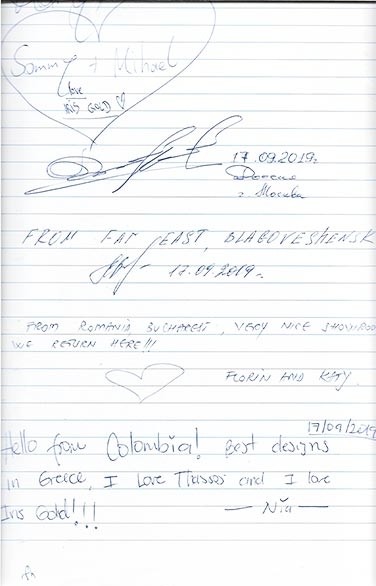 Sommy + Mihael
love
IRIS GOLD ♡
17.09.2019г.
Россия
г. Москва
FROM FAR EAST, BLAGOVESHENSK
17.09.2019г.
FROM ROMANIA BUCHAREST, VERY NICE SHOWROO
WE RETURN HERE!!!
FLORIN AND KATY
17/09/2019
Hello from Colombia! Best designs
in Greece, I love Thassos and I love
Iris Gold!!!
— Nia —